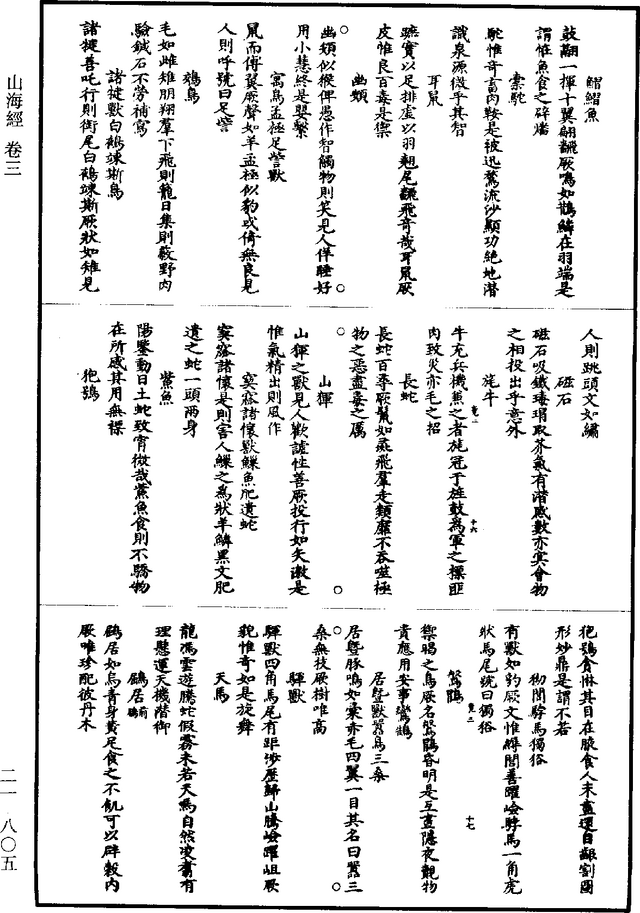 鰼鰼魚
鼓翮一揮十翼翩翻厥鳴如鵲鱗在羽端是
謂怪魚食之辟燔
橐駝
駝惟奇畜肉鞍是被迅騖流沙顯功絕地潛
識泉源微乎其智
耳鼠
蹠實以足排虛以羽翹尾翻飛奇哉耳鼠厥
皮惟良百毒是禦
幽頞
幽頞似猴俾愚作智觸物則笑見人佯睡好
用小慧終是嬰繫
寓鳥孟極足訾獸
鼠而傅翼厥聲如羊孟極似豹或倚無良見
人則呼號曰足訾
鵁鳥
毛如雌雉朋翔羣下飛則籠日集則蔽野肉
驗鍼石不勞補寫
諸犍獸白鵺竦斯鳥
諸犍善吒行則銜尾白鵺竦斯厥狀如雉見
人則跳頭文如繡
磁石
磁石吸鐵瑇瑁取芥氣有潛感數亦冥會物
之相投出乎意外
旄牛
牛充兵機兼之者旄冠于旌鼓為軍之標匪
肉致災亦毛之招
長蛇
長蛇百尋厥鬣如彘飛羣走類靡不吞噬極
物之惡盡毒之厲
山𤟤
山𤟤之獸見人歡謔性善厥投行如矢激是
惟氣精出則風作
窫窳諸懷獸鰈魚肥遺蛇
窫窳諸懷是則害人鰈之為狀羊鱗黑文肥
遺之蛇一頭兩身
鮆魚
陽鑒動日土蛇致宵微哉鮆魚食則不驕物
在所感其用無標
狍鴞
狍鴞貪惏其目在腋食人未盡還自齦割圖
形妙鼎是謂不若
狪閭騂馬獨𤞞
有獸如豹厥文惟縟閭善躍嶮騂馬一角虎
狀馬尾號曰獨𤞞
鷔鶘
禦暍之鳥厥名鷔鶘昏明是互晝隱夜覿物
貴應用安事鸞鵠
居暨獸囂鳥三桑
居暨豚鳴如彙赤毛四翼一目其名曰囂三
桑無枝厥樹唯高
驒獸
驒獸四角馬尾有距涉歷歸山騰嶮躍岨厥
貌惟奇如是旋舞
天馬
龍馮雲遊騰蛇假霧未若天馬自然凌翥有
理懸運天機潛御
鶌居
鶌居如烏青身黃足食之不飢可以辟穀內
厥唯珍配彼丹木
山海經 卷三
二一 八〇五